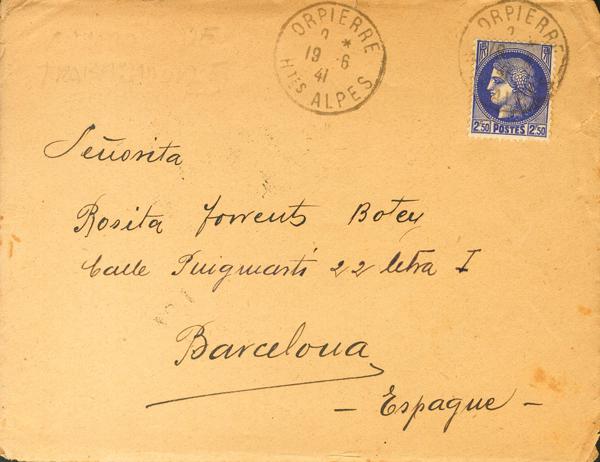 ORPIERRE
2 *
19 -6
41
Htes ALPES
ORPIERRE
2
RF
2f50 POSTES 2f50
Señorita
Rosita Torrents Botey
Calle Puigmartí 22 letra I
Barcelona
- Espagne -